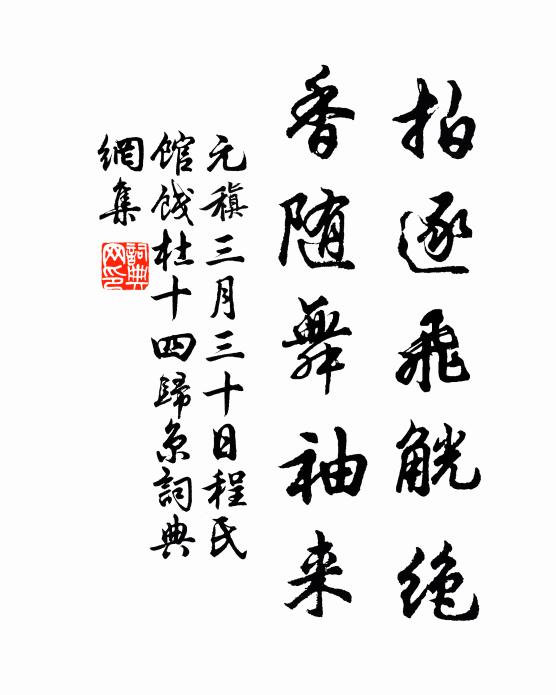 拍逐飛觥绝
香随舞袖来
元稹三月三十日程氏
館餞杜十四歸京詞典
網集
詞典
网印